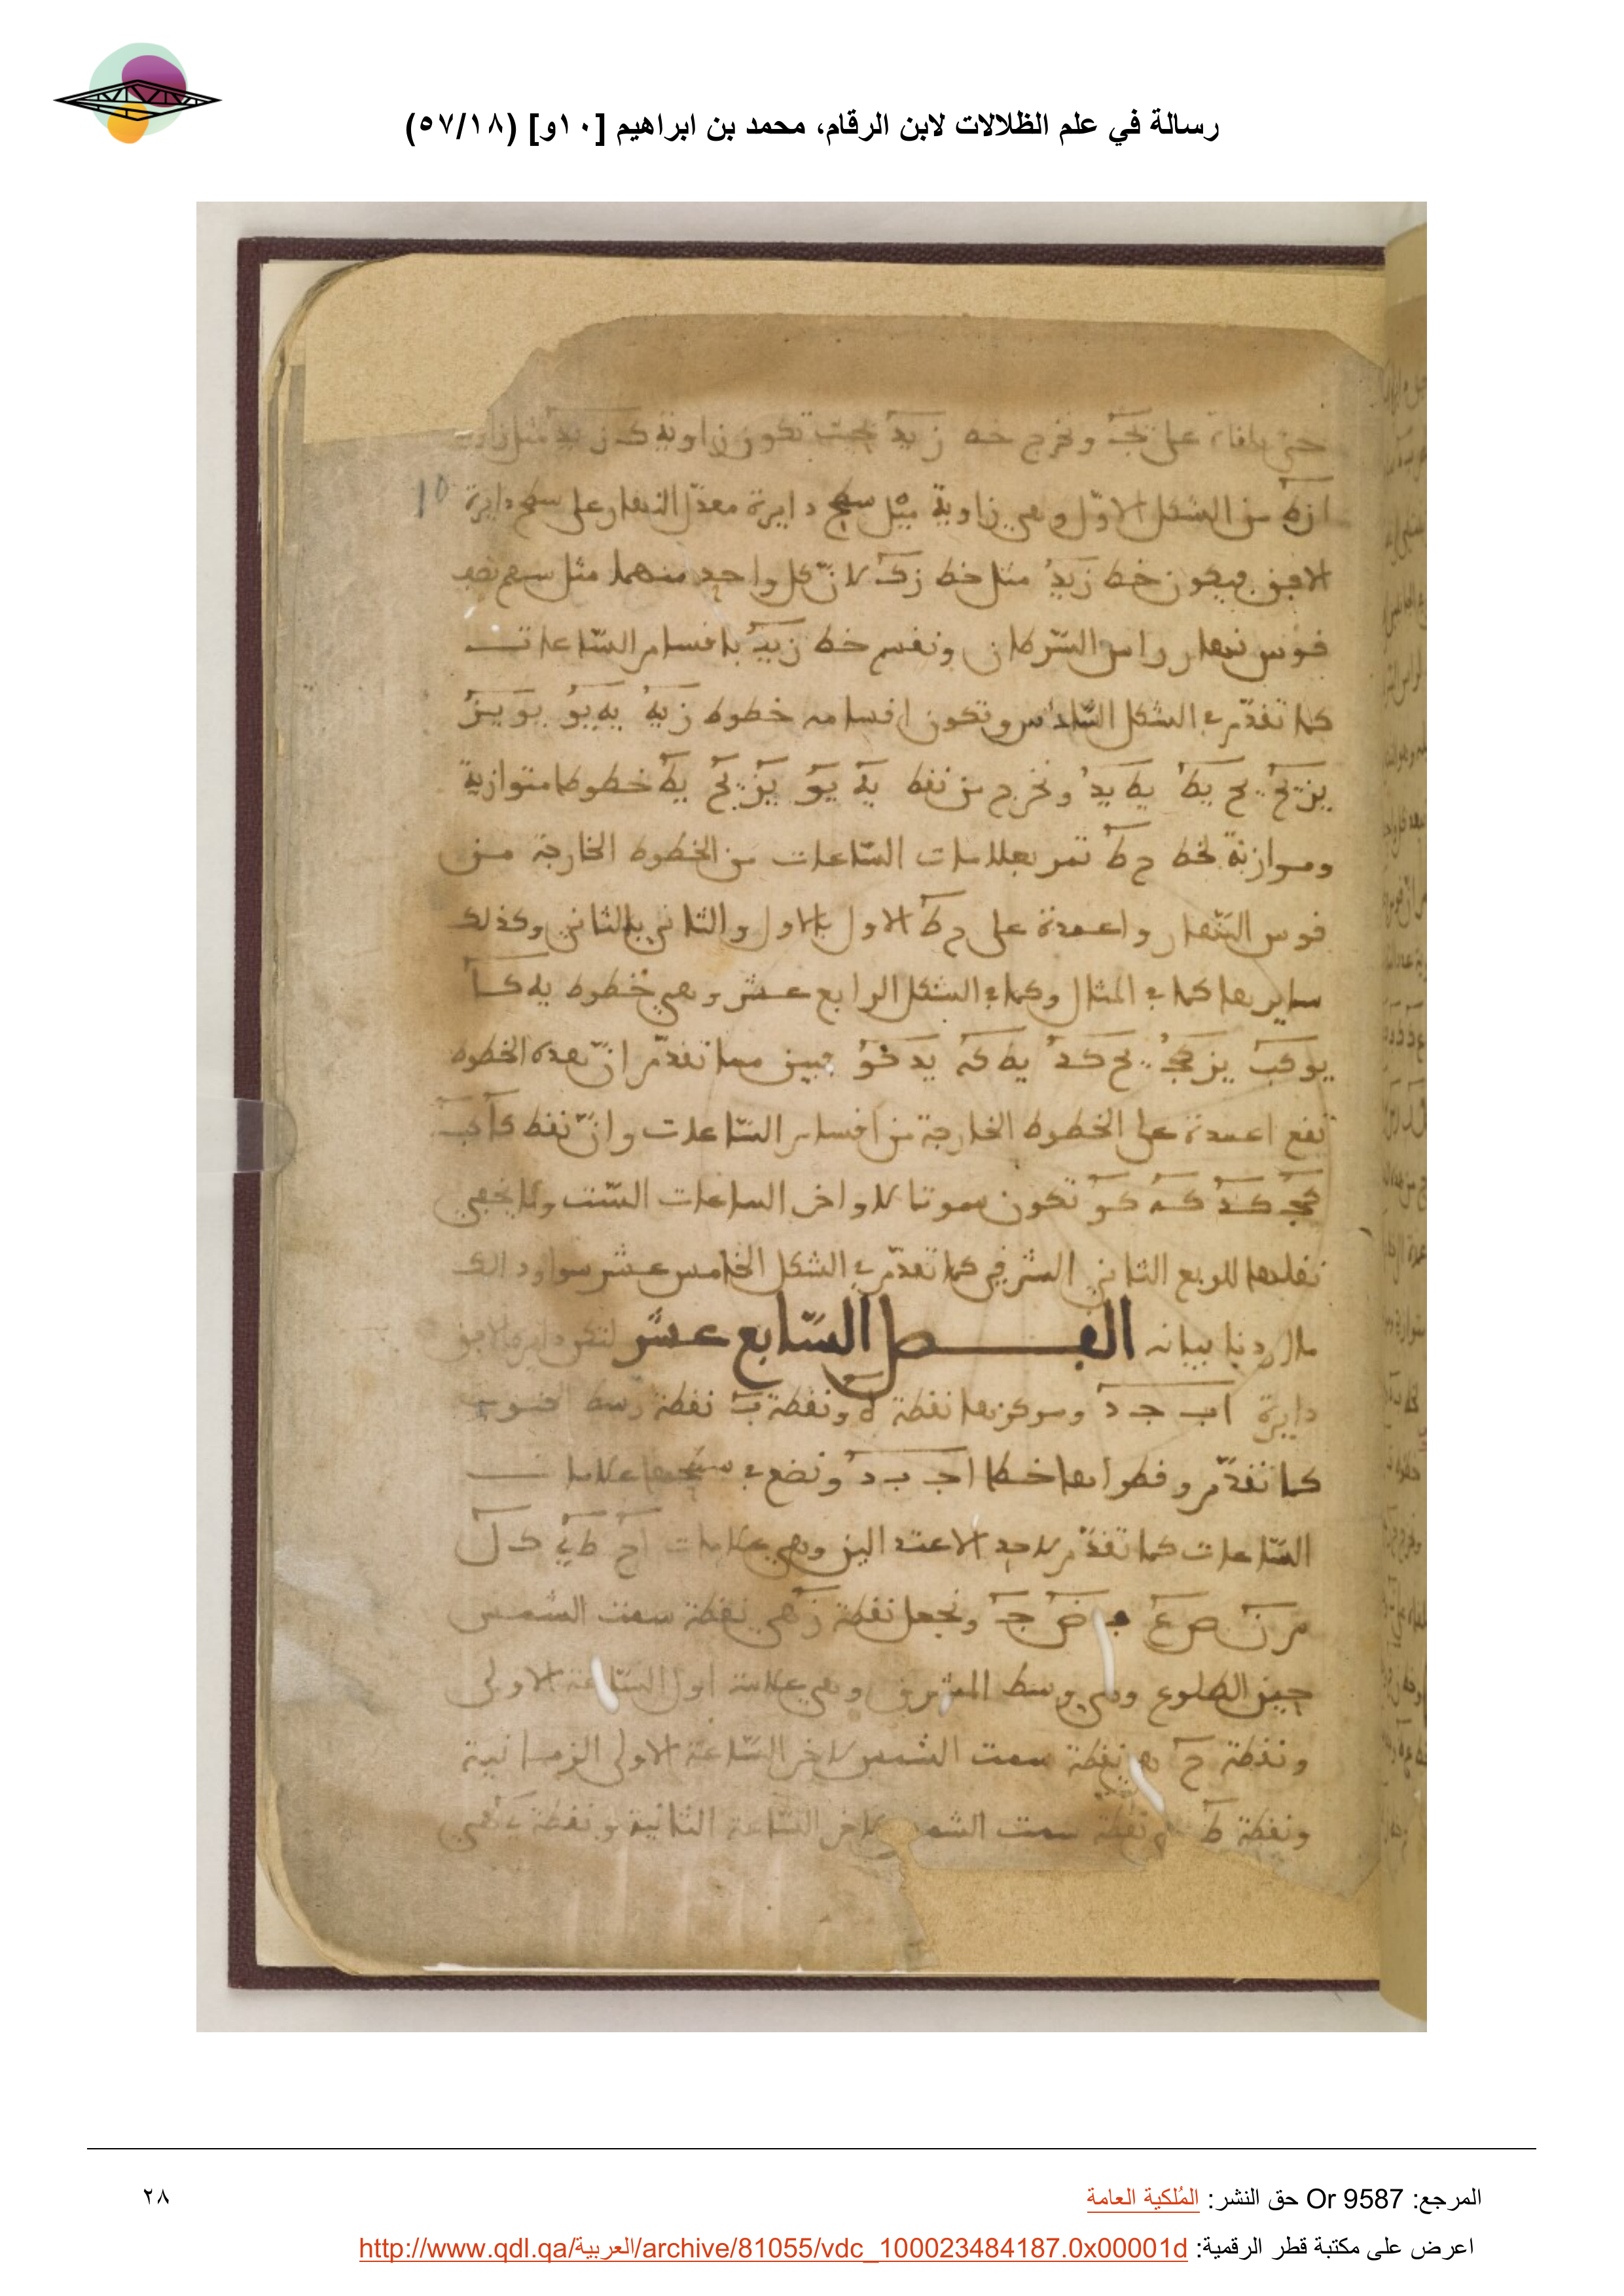 رسالة في علم الظلالات لابن الرقام، محمد بن ابراهيم [١٠و] (٥٧/١٨)
ونخرج خط زيد بحيث تكون زاوية كـ زيد مثل زاوية
10
من الشكل الاول وهي زاوية ميل سطح دايرة معدّل النهار على سطح دايرة
الافق فيكون خط زيد مثل خط زكـ لانّ كل واحد منهما مثل سهم نصف
قوس نهار راس السّرطان ونقسم خط زيد باقسام السّاعات
كما تقدّم في الشكل السّادس وتكون اقسامه خطوط زيه يه يو يو يز
يز يح يح يط يط يد ونخرج من نقط يه يو يز يح يط خطوطا متوازية
وموازية لخط ح ط تمر بعلامات السّاعات من الخطوط الخارجة من
قوس النّهار واعمدة على ح ط الاول بالاول والثاني بالثاني وكذلك
سايرها كما في المثال وكما في الشكل الرابع عشر وهي خطوط يه كا
يو كب يز كج يح كد يط كه يد كو فبين مما تقدّم انّ هذه الخطوط
تقع اعمدة على الخطوط الخارجة من اقسام السّاعات وانّ نقط كا كب
كج كد كه كو تكون سموتا لاواخر الساعات السّت ولا يخفى
نقلها للربع الثاني الشرقي كما تقدّم في الشكل الخامس عشر سوا وذلك
ما اردنا بيانه الفصل السّابع عشر لتكن دايرة الافق
دايرة اب جـ د ومركزها نقطة ه ونقطة ب نقطة وسط الجنوب
كما تقدّم وقطراها خطا اجـ ب د ونضع في
السّاعات كما تقدّم لاحد الاعتدالين وهي علامات اح ط ي كـ ل
م ن ص ع ف ض جـ ونجعل نقطة ز هي نقطة سمت الشمس
حين الطلوع وهي وسط المشرق وهي علامة اول السّاعة الاولى
ونقطة ح هي نقطة سمت الشمس لاخر السّاعة الاولى الزمانية
ونقطة ط نقطة سمت الشمس لاخر السّاعة الثانية ونقطة ي هي
المرجع: Or 9587 حق النشر: المُلكية العامة
٢٨
اعرض على مكتبة قطر الرقمية: http://www.qdl.qa/العربية/archive/81055/vdc_100023484187.0x00001d